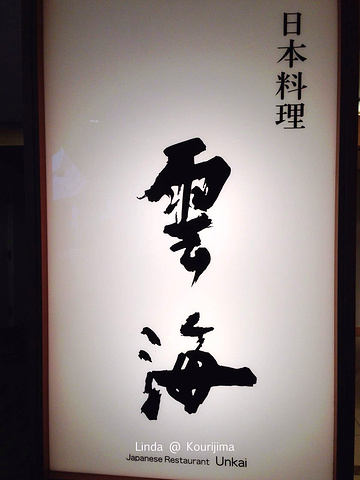 日本料理
雲海
Linda @ Kourijima
Japanese Restaurant Unkai